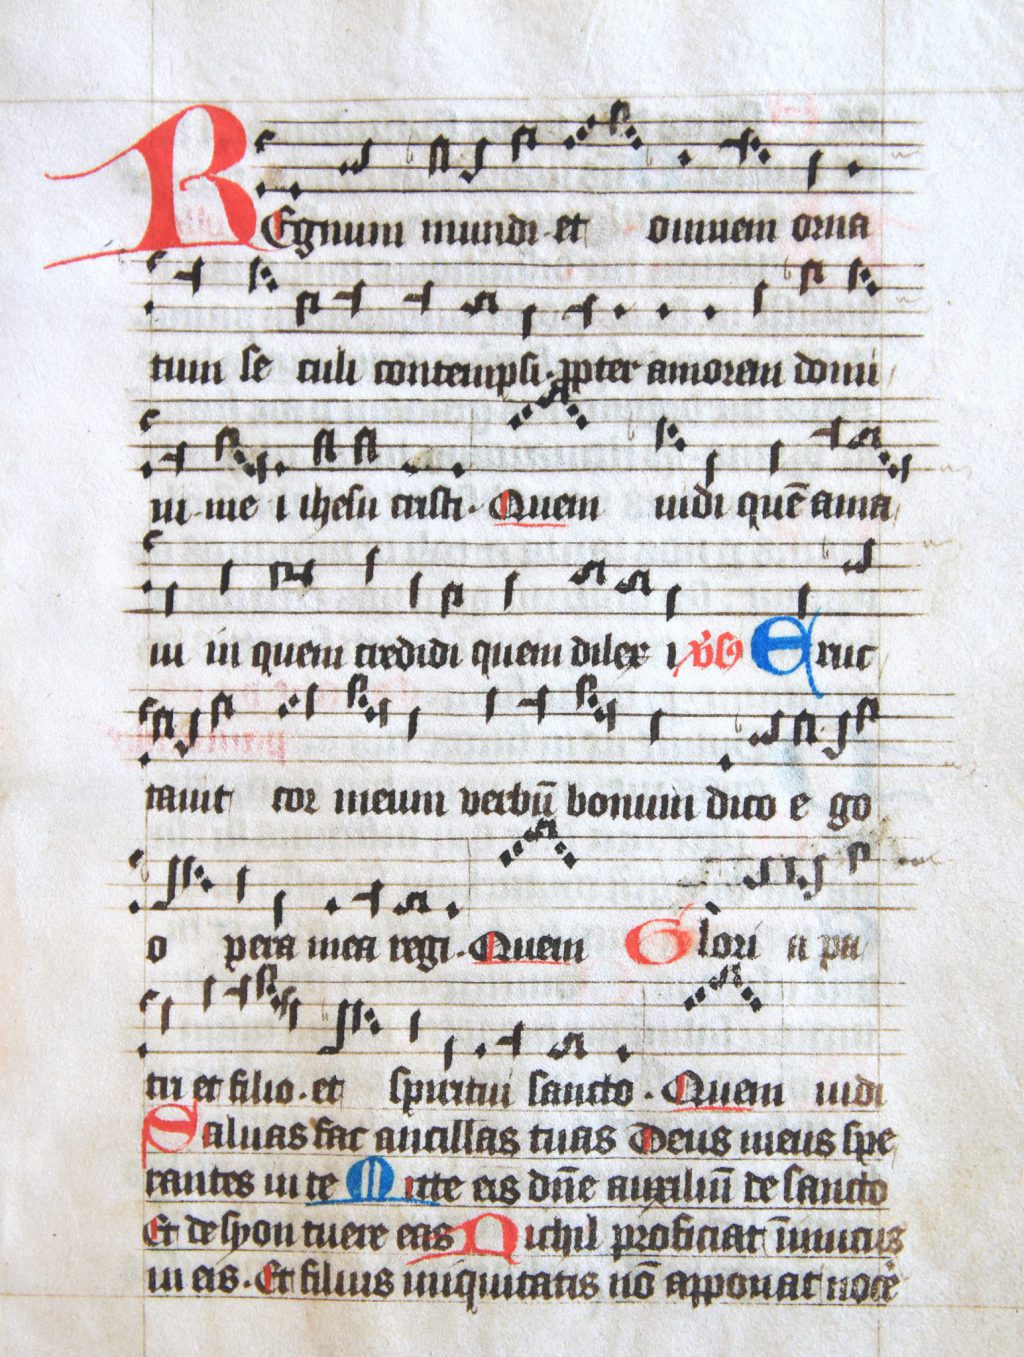 REgnum mundi et omnem orna
tum se culi contempsi. ꝓpter amorem domi
ni me i ihesu cristi. Quem uidi quē ama
ui in quem credidi quem dilex i Eruc
tauit cor meum verbū bonum dico e go
o pera mea regi. Quem Glori a pa
tri et filio. et spiritui sancto. Quem uidi
Saluas fac ancillas tuas Deus meus spe
rantes in te Mitte eis dn̄e auxiliū de sancto
Et de syon tuere eas Nichil proficiat īimicus
in eis. Et filius iniquitatis nō apponat nocē